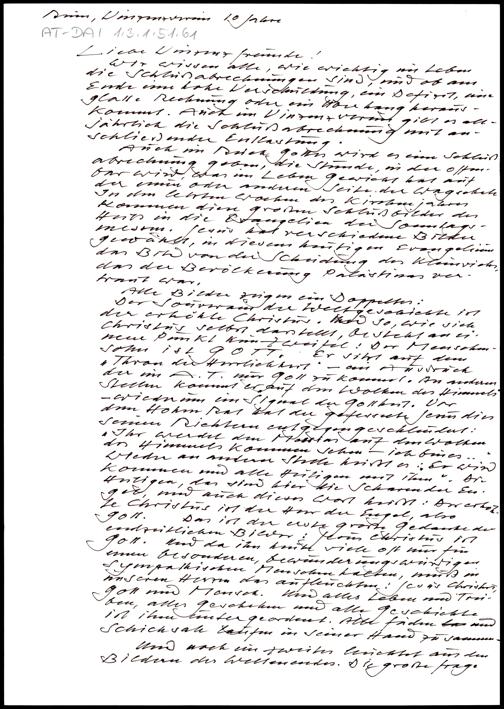 Vinzenzverein 10 Jahre
AT-DAI 1.3.1.51.61
Liebe Vinzenzfreunde!
Wir wissen alle, wie wichtig im Leben
die Schlußabrechnungen sind, und ob am
Ende eine hohe Verschuldung, ein Defizit, eine
glatte Rechnung oder ein Überhang heraus-
kommt. Auch im Vinzenzverein gibt es all-
jährlich die Schlußabrechnung mit an-
schließender Entlastung.
Auch im Reich Gottes wird es eine Schluß
abrechnung geben, die Stunde, in der offen-
bar wird, was im Leben Gewicht hat auf
der einen oder anderen Seite der Wagschale
In den letzten Wochen des Kirchenjahres
kommen diese großen Schlußbilder des
Herrn in die Evangelien der Sonntags-
messen. Jesus hat verschiedene Bilder
gewählt, in diesem heutigen Evangelium
das Bild von der Scheidung des Kleinviehs,
das der Bevölkerung Palästinas ver-
traut war.
Alle Bilder zeigen ein Doppeltes:
Der Souverän der Weltgeschichte ist
der erhöhte Christus. Und so, wie sich
Christus selbst darstellt, besteht an ei-
nem Punkt kein Zweifel: Der Menschen-
sohn ist GOTT. Er sitzt auf dem
"Thron der Herrlichkeit" - ein Ausdruck
der im A.T. nur Gott zukommt. An anderen
Stellen kommt er auf den Wolken des Himmels
- wiederum ein Signal der Gottheit. Vor
dem Hohen Rat hat der gefesselte Jesus dies
seinen Richtern entgegengeschleudert:
"Ihr werdet den auf den Wolken
des Himmels kommen sehen - ich bin es..."
Wieder an anderer Stelle heißt es: "Er wird
kommen und alle Heiligen mit ihm". Die
Heiligen, das sind hier die Scharen der En-
gel, und auch dieses Wort heißt: Der erhöh-
te Christus ist der Herr der Engel, also
Gott. Das ist der erste große Gedanke der
endzeitlichen Bilder: Jesus Christus ist
Gott. Und da ihn heute viele oft nur für
einen besonderen, bewunderungswürdigen
sympathischen Menschen halten, muß in
unseren Herzen das aufleuchten: Jesus Christus,
Gott und Mensch. Und alles Leben und Trei-
ben, alles Geschehen und alle Geschichte
ist ihm untergeordnet. Alle Fäden und
Schicksale laufen in seiner Hand zusammen
Und noch ein zweites leuchtet aus den
Bildern des Weltenendes. Die große Frage